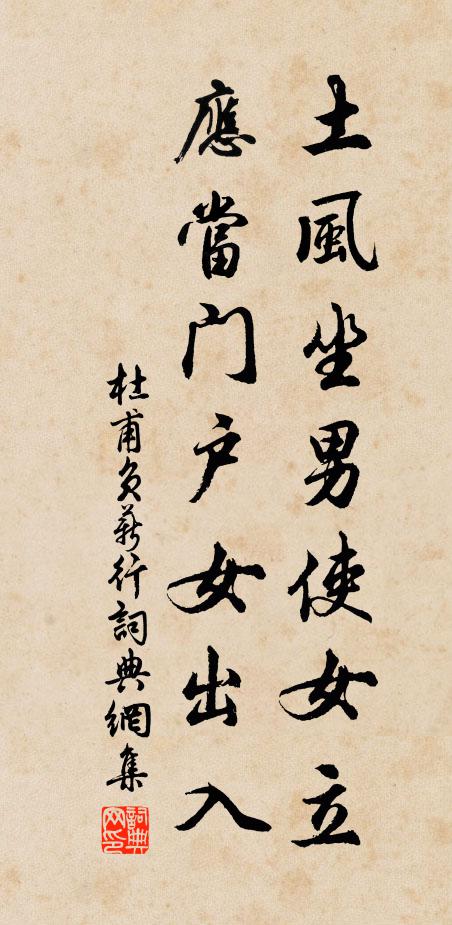 土風坐男使女立
應當門户女出入
杜甫負薪行詞典網集
詞典
网印